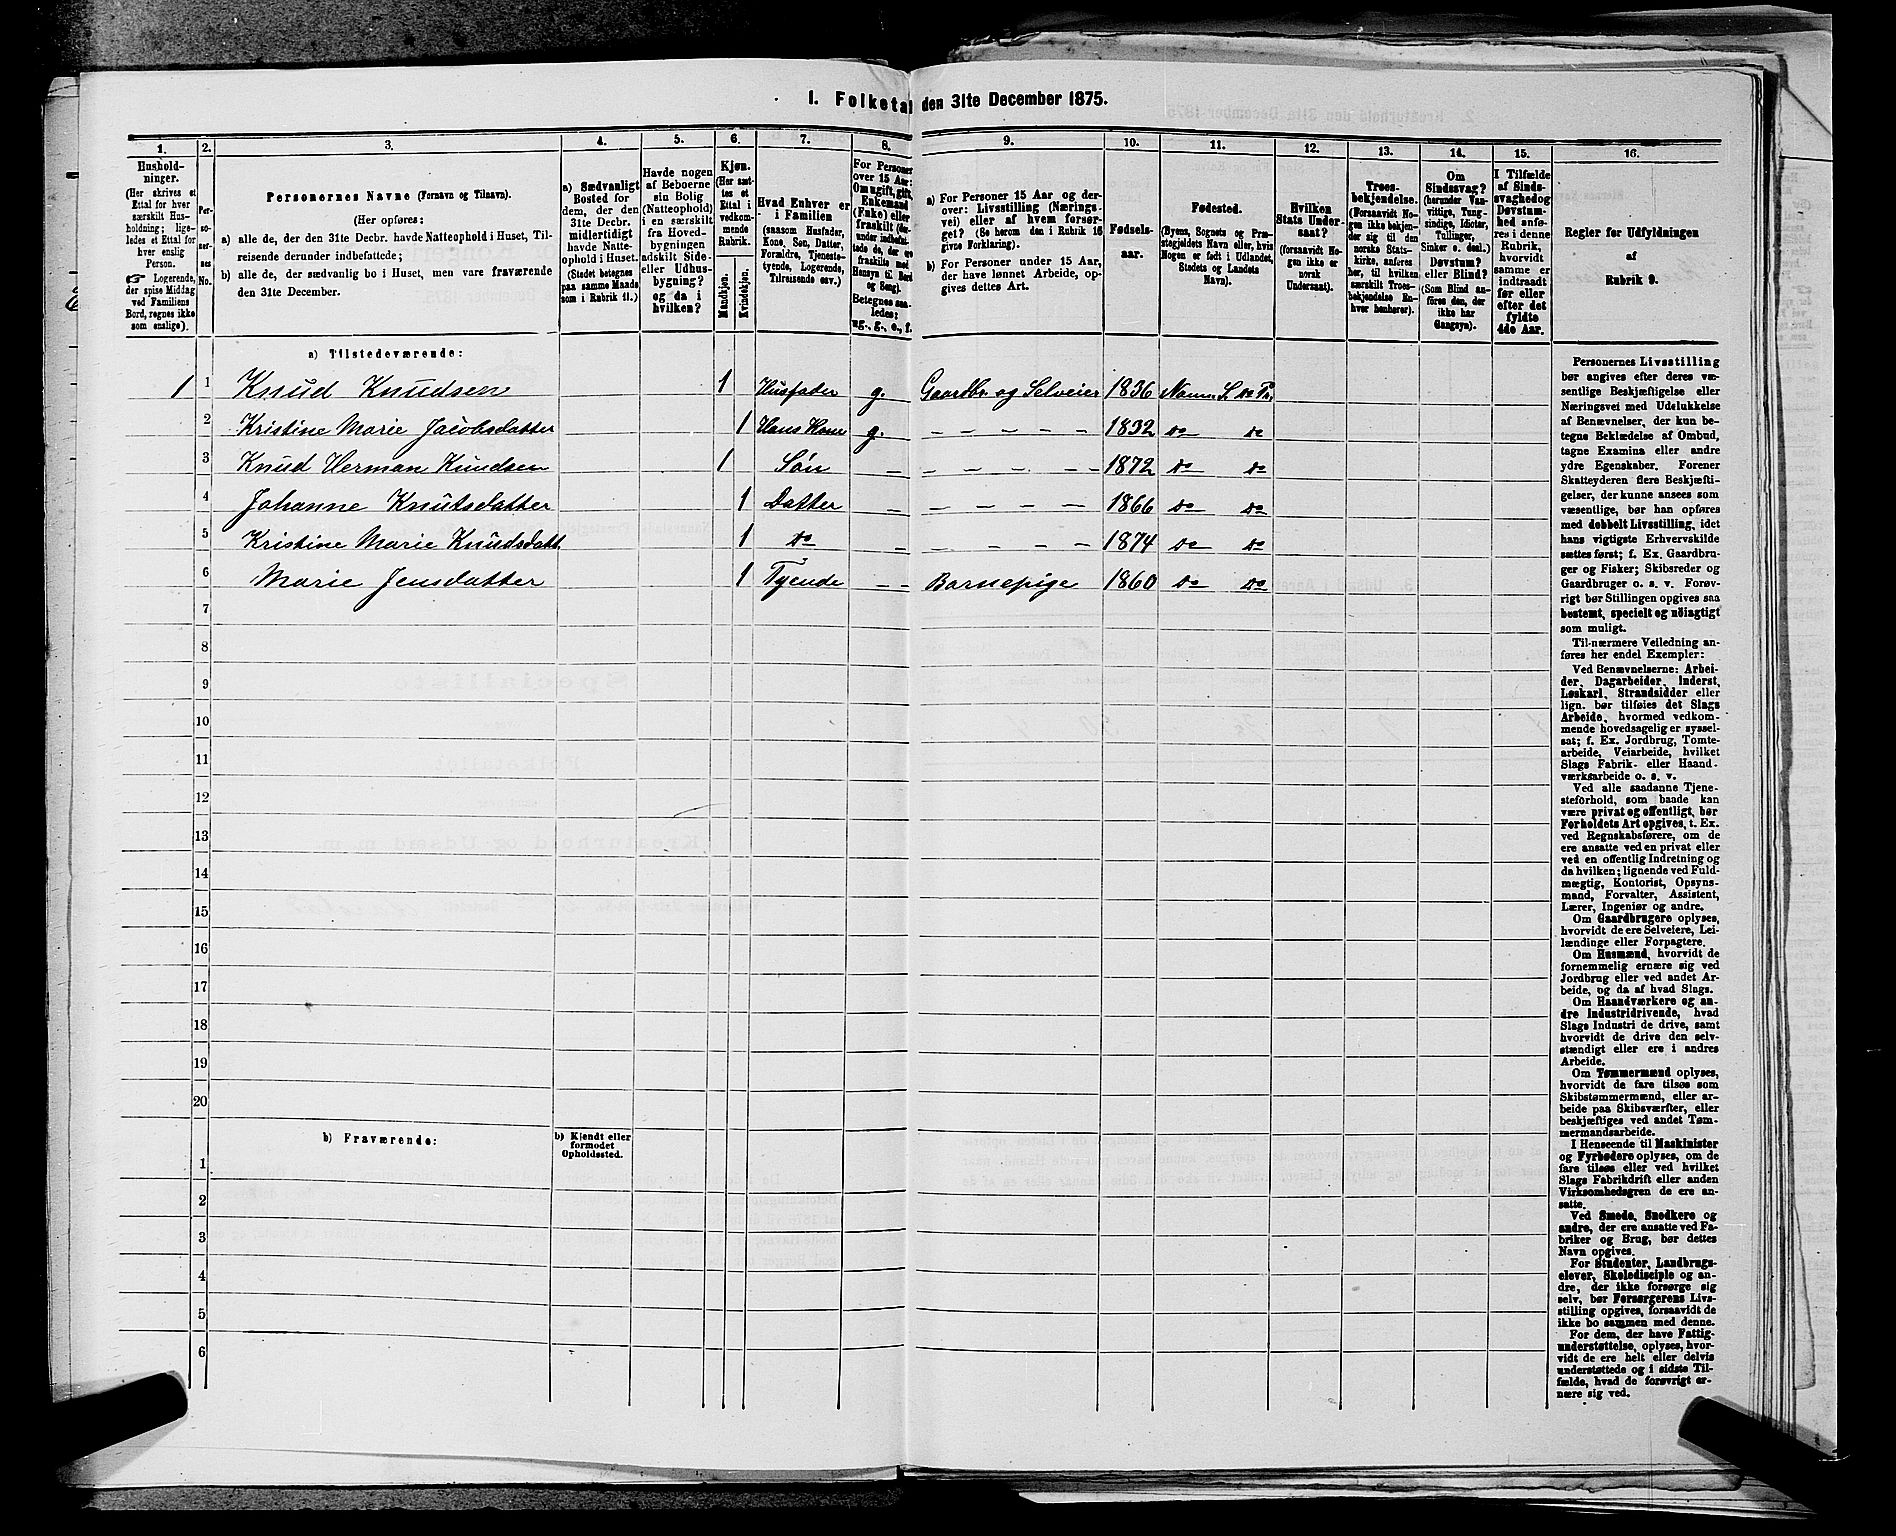 1. Folketal den 31te December 1875.
1.
2.
3.
4.
5.
6.
7.
8.
9.
10.
11.
12.
13.
14.
15.
16.
Hushold-
ninger.
(Her skrives et
Ettal for hver
særskilt Hus-
holdning; lige-
ledes et Ettal for
hver enslig
Person.
☞ Logerende,
der spise Middag
ved Familiens
Bord, regnes ikke
som enslige).
Per-
so-
ner-
nes
No.
Personernes Navne (Fornavn og Tilnavn).
(Her opføres:
a) alle de, der den 31te Decbr. havde Natteophold i Huset, Til-
reisende derunder indbefattede;
b) alle de, der sædvanlig bo i Huset, men vare fraværende
den 31te December.
a) Sædvanligt
Bosted for
dem, der den
31te Decbr.
midlertidigt
havde Natte-
ophold i Huset.
(Stedet betegnes
paa samme Maade
som i Rubrik 11.)
Havde nogen
af Beboerne
sin Bolig
(Natteophold)
i en særskilt
fra Hoved-
bygningen
adskilt Side-
eller Udhus-
bygning?
og da i
hvilken?
Kjøn.
(Her sæt-
tes et
Ettal i
vedkom-
mende
Rubrik.
Mandkjøn.
Kvindekjøn.
Hvad Enhver er
i Familien
(saasom Husfader,
Kone, Søn, Datter,
Forældre, Tjeneste-
tyende, Logerende,
Tilreisende osv.)
For Personer
over 15 Aar:
Om ugift, gift,
Enkemand
(Enke) eller
fraskilt
Betegnes saa-
ledes:
ug., g., e., f.
a) For Personer 15 Aar og der-
over: Livsstilling (Nærings-
vei) eller af hvem forsør-
get? (Se herom den i Rubrik 16
givne Forklaring).
b) For Personer under 15 Aar,
der have lønnet Arbeide, op-
gives dettes Art.
Fødsels-
aar.
Fødested.
(Byens, Sognets og Præ-
stegjeldets Navn eller, hvis
Nogen er født i Udlandet,
Stedets og Landets
Navn).
Hvilken
Stats Under-
saat?
(forsaavidt No-
gen ikke er
norsk
Undersaat).
Troes-
bekjendelse.
(Forsaavidt No-
gen ikke bekjen-
der sig til den
norske Stats-
kirke, anføres
her, til hvilken
særskilt Troes-
bekjendelse En-
hver henhører).
Om
Sindssvag?
(herunder Van-
vittige, Tung-
sindige, Idioter,
Tullinger,
Sinker o. desl.)
Døvstum?
eller Blind?
(Som Blind an-
føres den, der
ikke har
Gangsyn).
I Tilfælde
af Sinds-
svaghed og
Døvstum-
hed anfø-
res i denne
Rubrik,
hvorvidt
samme er
indtraadt
før eller
efter det
fyldte
4de Aar.
Regler for Udfyldningen
af
Rubrik 9.
a) Tilstedeværende:
1 1 Knud Knudsen 1 Husfader g. Gaardbr. og Selveier 1836 Nannes. S. do Pr.
2 Kristine Marie Jacobsdatter 1 Hans Kone g. – – – – – 1832 do do
3 Knud Herman Knudsen 1 Søn – – – – – 1872 do do
4 Johanne Knutsdatter 1 Datter – – – – – 1866 do do
5 Kristine Marie Knudsdatt. 1 do – – – – – 1874 do do
6 Marie Jensdatter 1 Tyende – – Barnepige 1860 do do
7
8
9
10
11
12
13
14
15
16
17
18
19
20
b) Fraværende:
b) Kjendt eller
formodet
Opholdssted.
1
2
3
4
5
6
Personernes Livsstilling
bør angives efter deres væ-
sentlige Beskjæftigelse eller
Næringsvei med Udelukkelse
af Benævnelser, der kun be-
tegne Beklædelse af Ombud,
tagne Examina eller andre
ydre Egenskaber. Forener
Skatteyderen flere Beskjæfti-
gelser, der kunne ansees som
væsentlige, bør han opføres
med dobbelt Livsstilling, idet
hans vigtigste Erhvervskilde
sættes først; f. Ex. Gaardbru-
ger og Fisker; Skibsreder og
Gaardbruger o. s. v. Forøv-
rigt bør Stillingen opgives saa
bestemt, specielt og nøiagtigt
som muligt.
Til nærmere Veiledning an-
føres her endel Exempler:
Ved Benævnelserne: Arbei-
der, Dagarbeider, Inderst,
Løskarl, Strandsidder eller
lign. bør tilføies det Slags
Arbeide, hvormed vedkom-
mende hovedsagelig er syssel-
sat; f. Ex. Jordbrug, Tomte-
arbeide, Veiarbeide, hvilket
Slags Fabrik- eller Haand-
værksarbeide o. s. v.
Ved alle saadanne Tjene-
steforhold, som baade kan
være privat og offentligt, bør
Forholdets Art opgives, t. Ex.
ved Regnskabsførere, om de
ere ansatte ved en privat eller
ved en offentlig Indretning og
da hvilken; lignende ved Fuld-
mægtig, Kontorist, Opsyns-
mand, Forvalter, Assistent,
Lærer, Ingeniør og andre.
Om Gaardbrugere oplyses,
hvorvidt de ere Selveiere, Lei-
lændinge eller Forpagtere.
Om Husmænd, hvorvidt de
fornemmelig ernære sig ved
Jordbrug eller ved andet Ar-
beide, og da af hvad Slags.
Om Haandværkere og an-
dre Industridrivende, hvad
Slags Industri de drive, samt
hvorvidt de drive den selv-
stændigt eller ere i andres
Arbeide.
Om Tømmermænd oplyses,
hvorvidt de fare tilsøs som
Skibstømmermænd, eller ar-
beide paa Skibsværfter, eller
beskjæftiges ved andet Tøm-
mermandsarbeide.
I Henseende til Maskinister
og Fyrbødere oplyses, om de
fare tilsøs eller ved hvilket
Slags Fabrikdrift eller anden
Virksomhedsgren de ere an-
satte.
Ved Smede, Snedkere og
andre, der ere ansatte ved Fa-
briker og Brug, bør dettes
Navn opgives.
For Studenter, Landbrugs-
elever, Skoledisciple og an-
dre, der ikke forsørge sig
selv, bør Forsørgerens Livs-
stilling opgives, forsaavidt de
ikke bo sammen med denne.
For dem, der have Fattig-
understøttelse, oplyses, hvor-
vidt de ere helt eller delvis
understøttede og i sidste Til-
fælde, hvad de forøvrigt er-
nære sig ved.